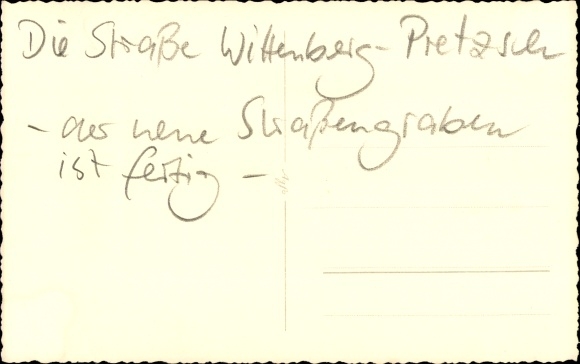 Die Straße Wittenberg - Pretzsch
- der neue Straßengraben
ist fertig -